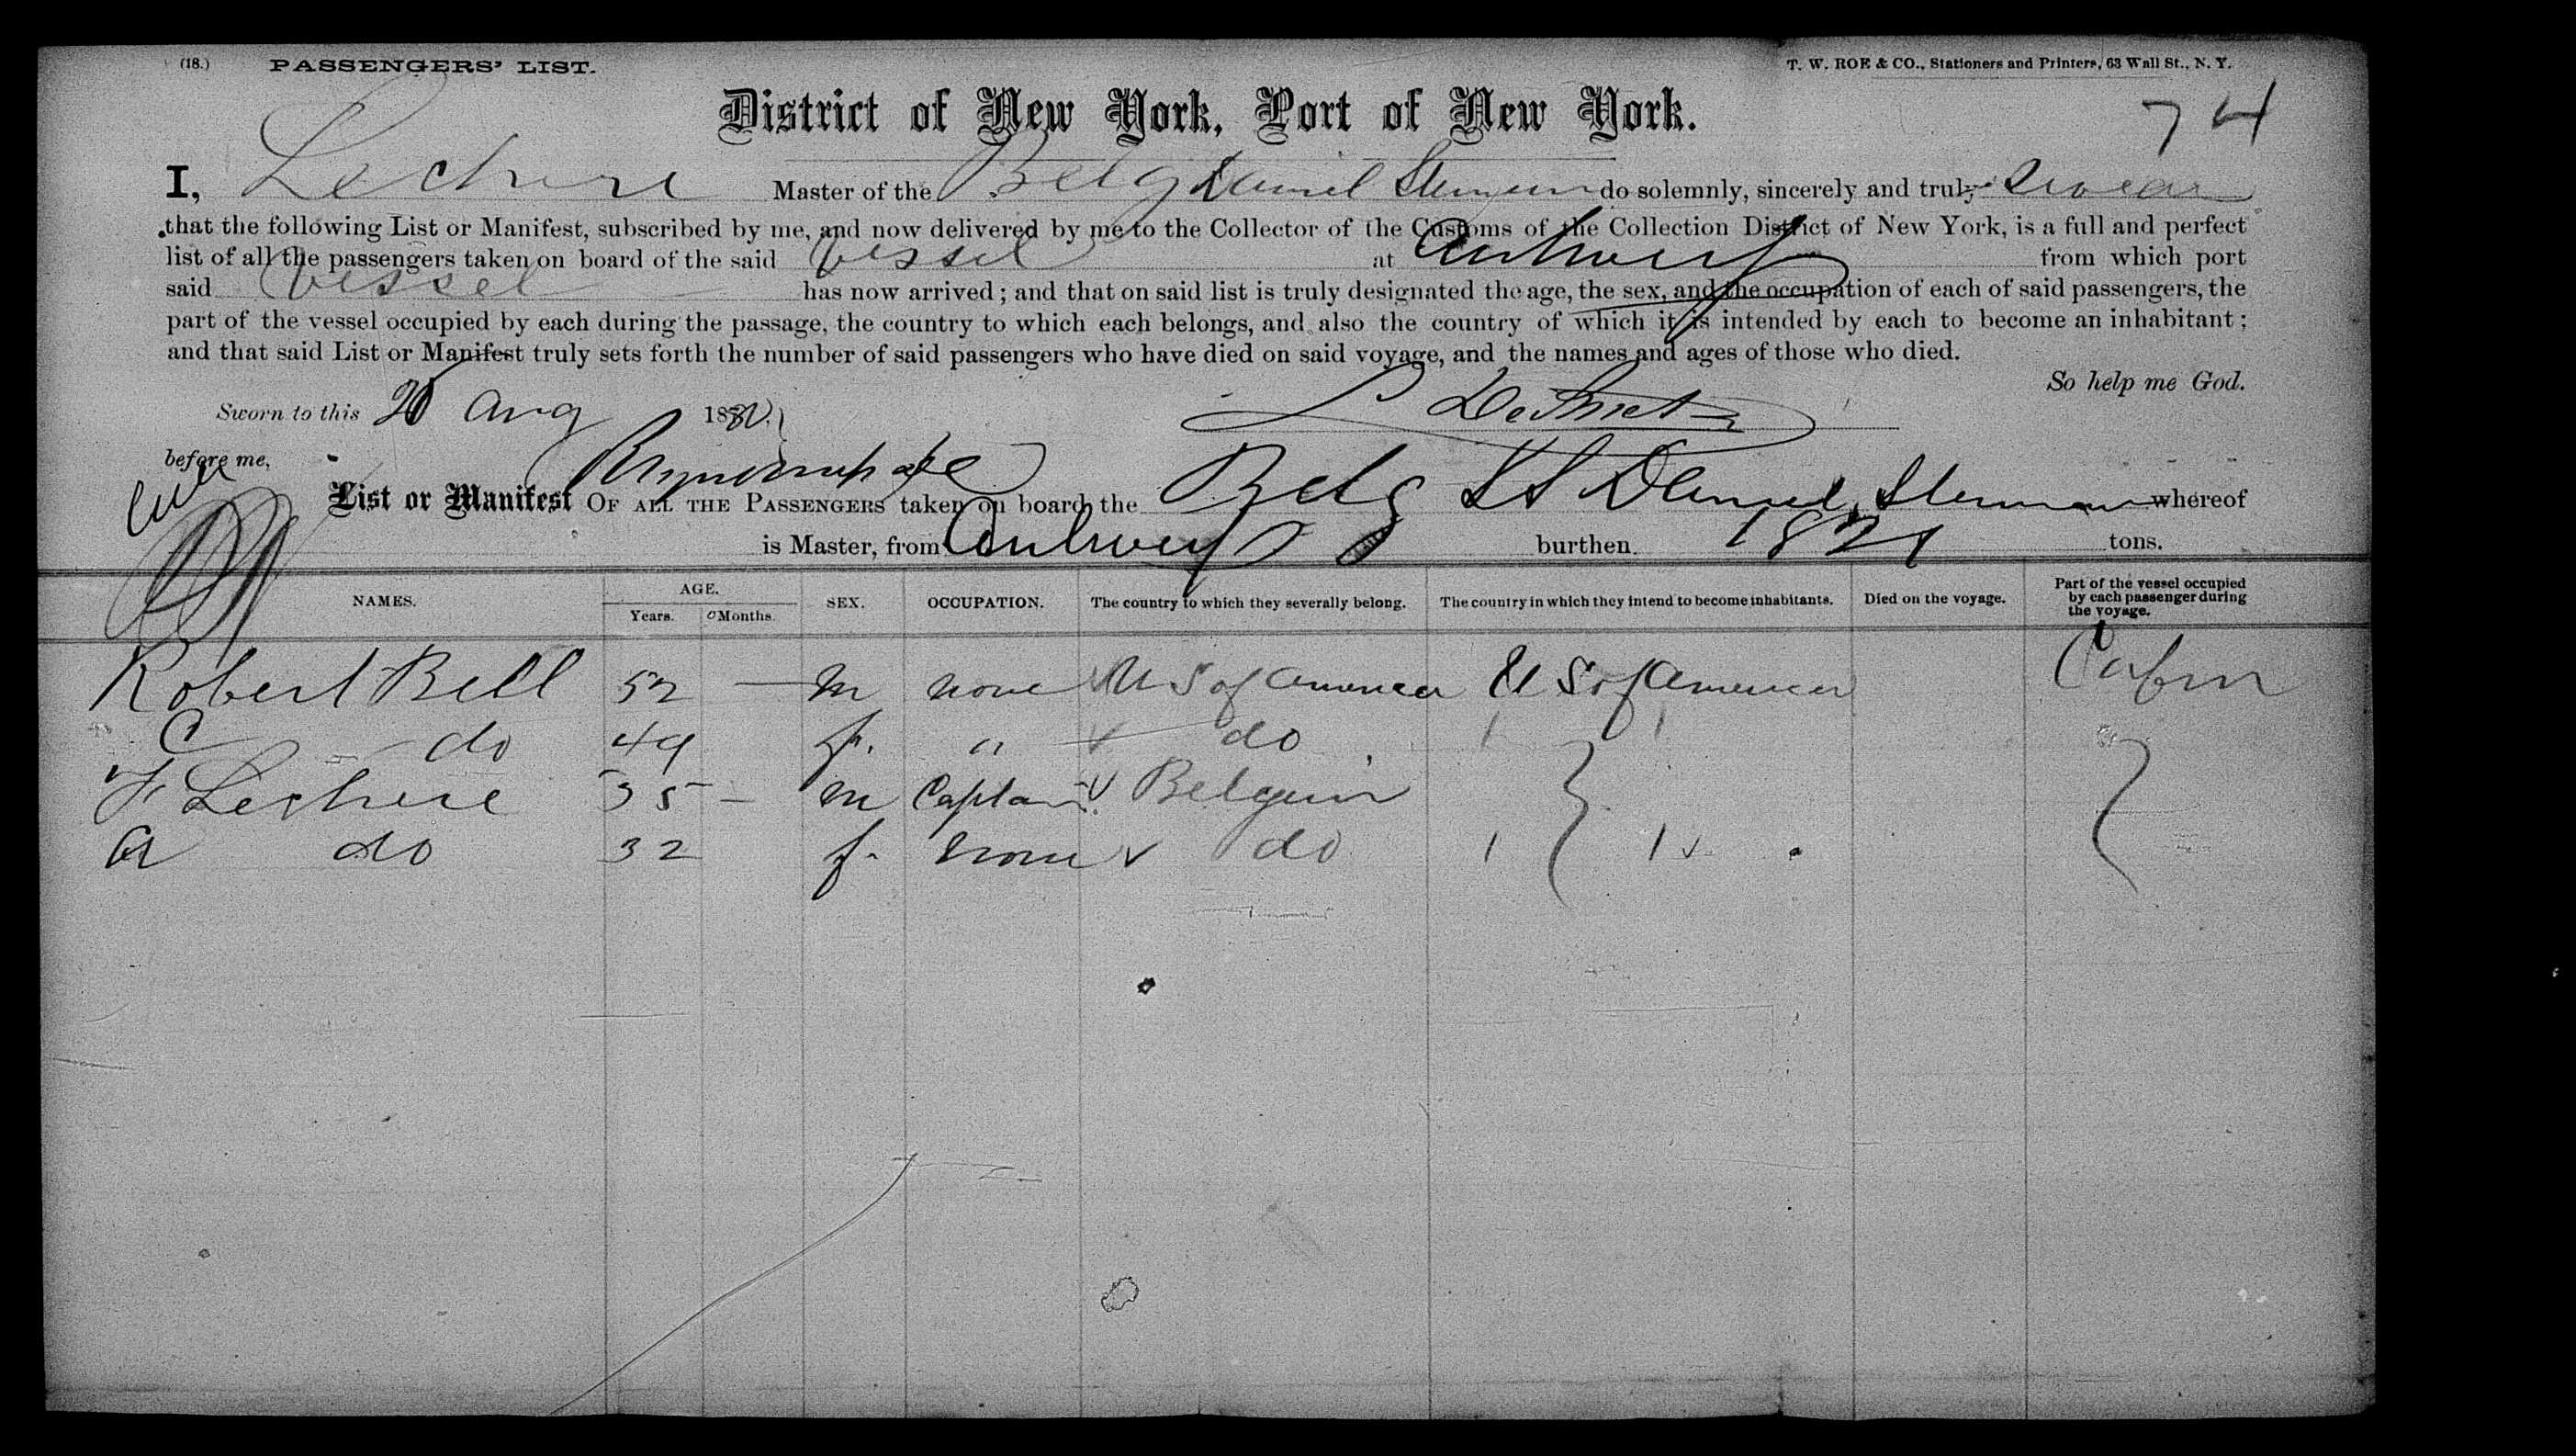 (18.) PASSENGERS' LIST. T. W. ROE & CO., Stationers and Printers, 63 Wall St., N. Y.
District of New York, Port of New York. 74
I, Lechere Master of the Belg Daniel Steinman do solemnly, sincerely and truly swear
that the following List or Manifest, subscribed by me, and now delivered by me to the Collector of the Customs of the Collection District of New York, is a full and perfect
list of all the passengers taken on board of the said vessel at Antwerp from which port
said vessel has now arrived; and that on said list is truly designated the age, the sex, and the occupation of each of said passengers, the
part of the vessel occupied by each during the passage, the country to which each belongs, and also the country of which it is intended by each to become an inhabitant;
and that said List or Manifest truly sets forth the number of said passengers who have died on said voyage, and the names and ages of those who died.
So help me God.
Sworn to this Aug 1880. L DeSmet
before me,
List or Manifest OF ALL THE PASSENGERS taken on board the Belg SS Daniel Steinman whereof
is Master, from Antwerp burthen 1821 tons.
NAMES. AGE. Years. Months. SEX. OCCUPATION. The country to which they severally belong. The country in which they intend to become inhabitants. Died on the voyage. Part of the vessel occupied by each passenger during the voyage.
Robert Bell 52 — m none U S of America U S of America Cabin
C do 49 f. " do
F Lechere 35 — m Captain Belgium
A do 32 f. none do